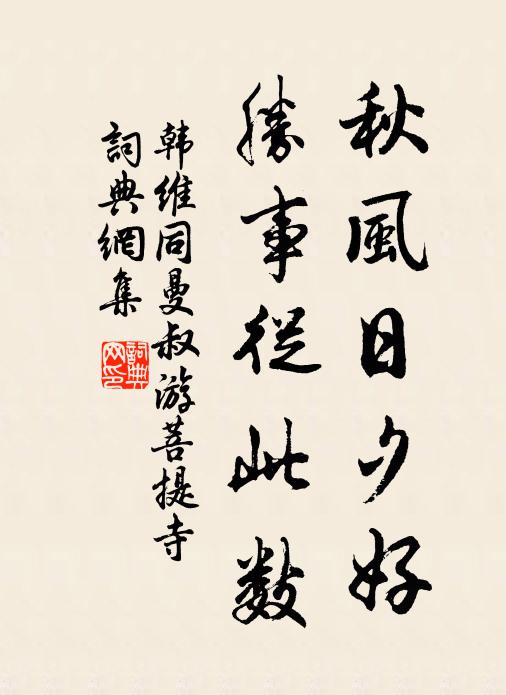 秋風日夕好
勝事從此數
韩維同曼叔游菩提寺
詞典網集
詞典網印